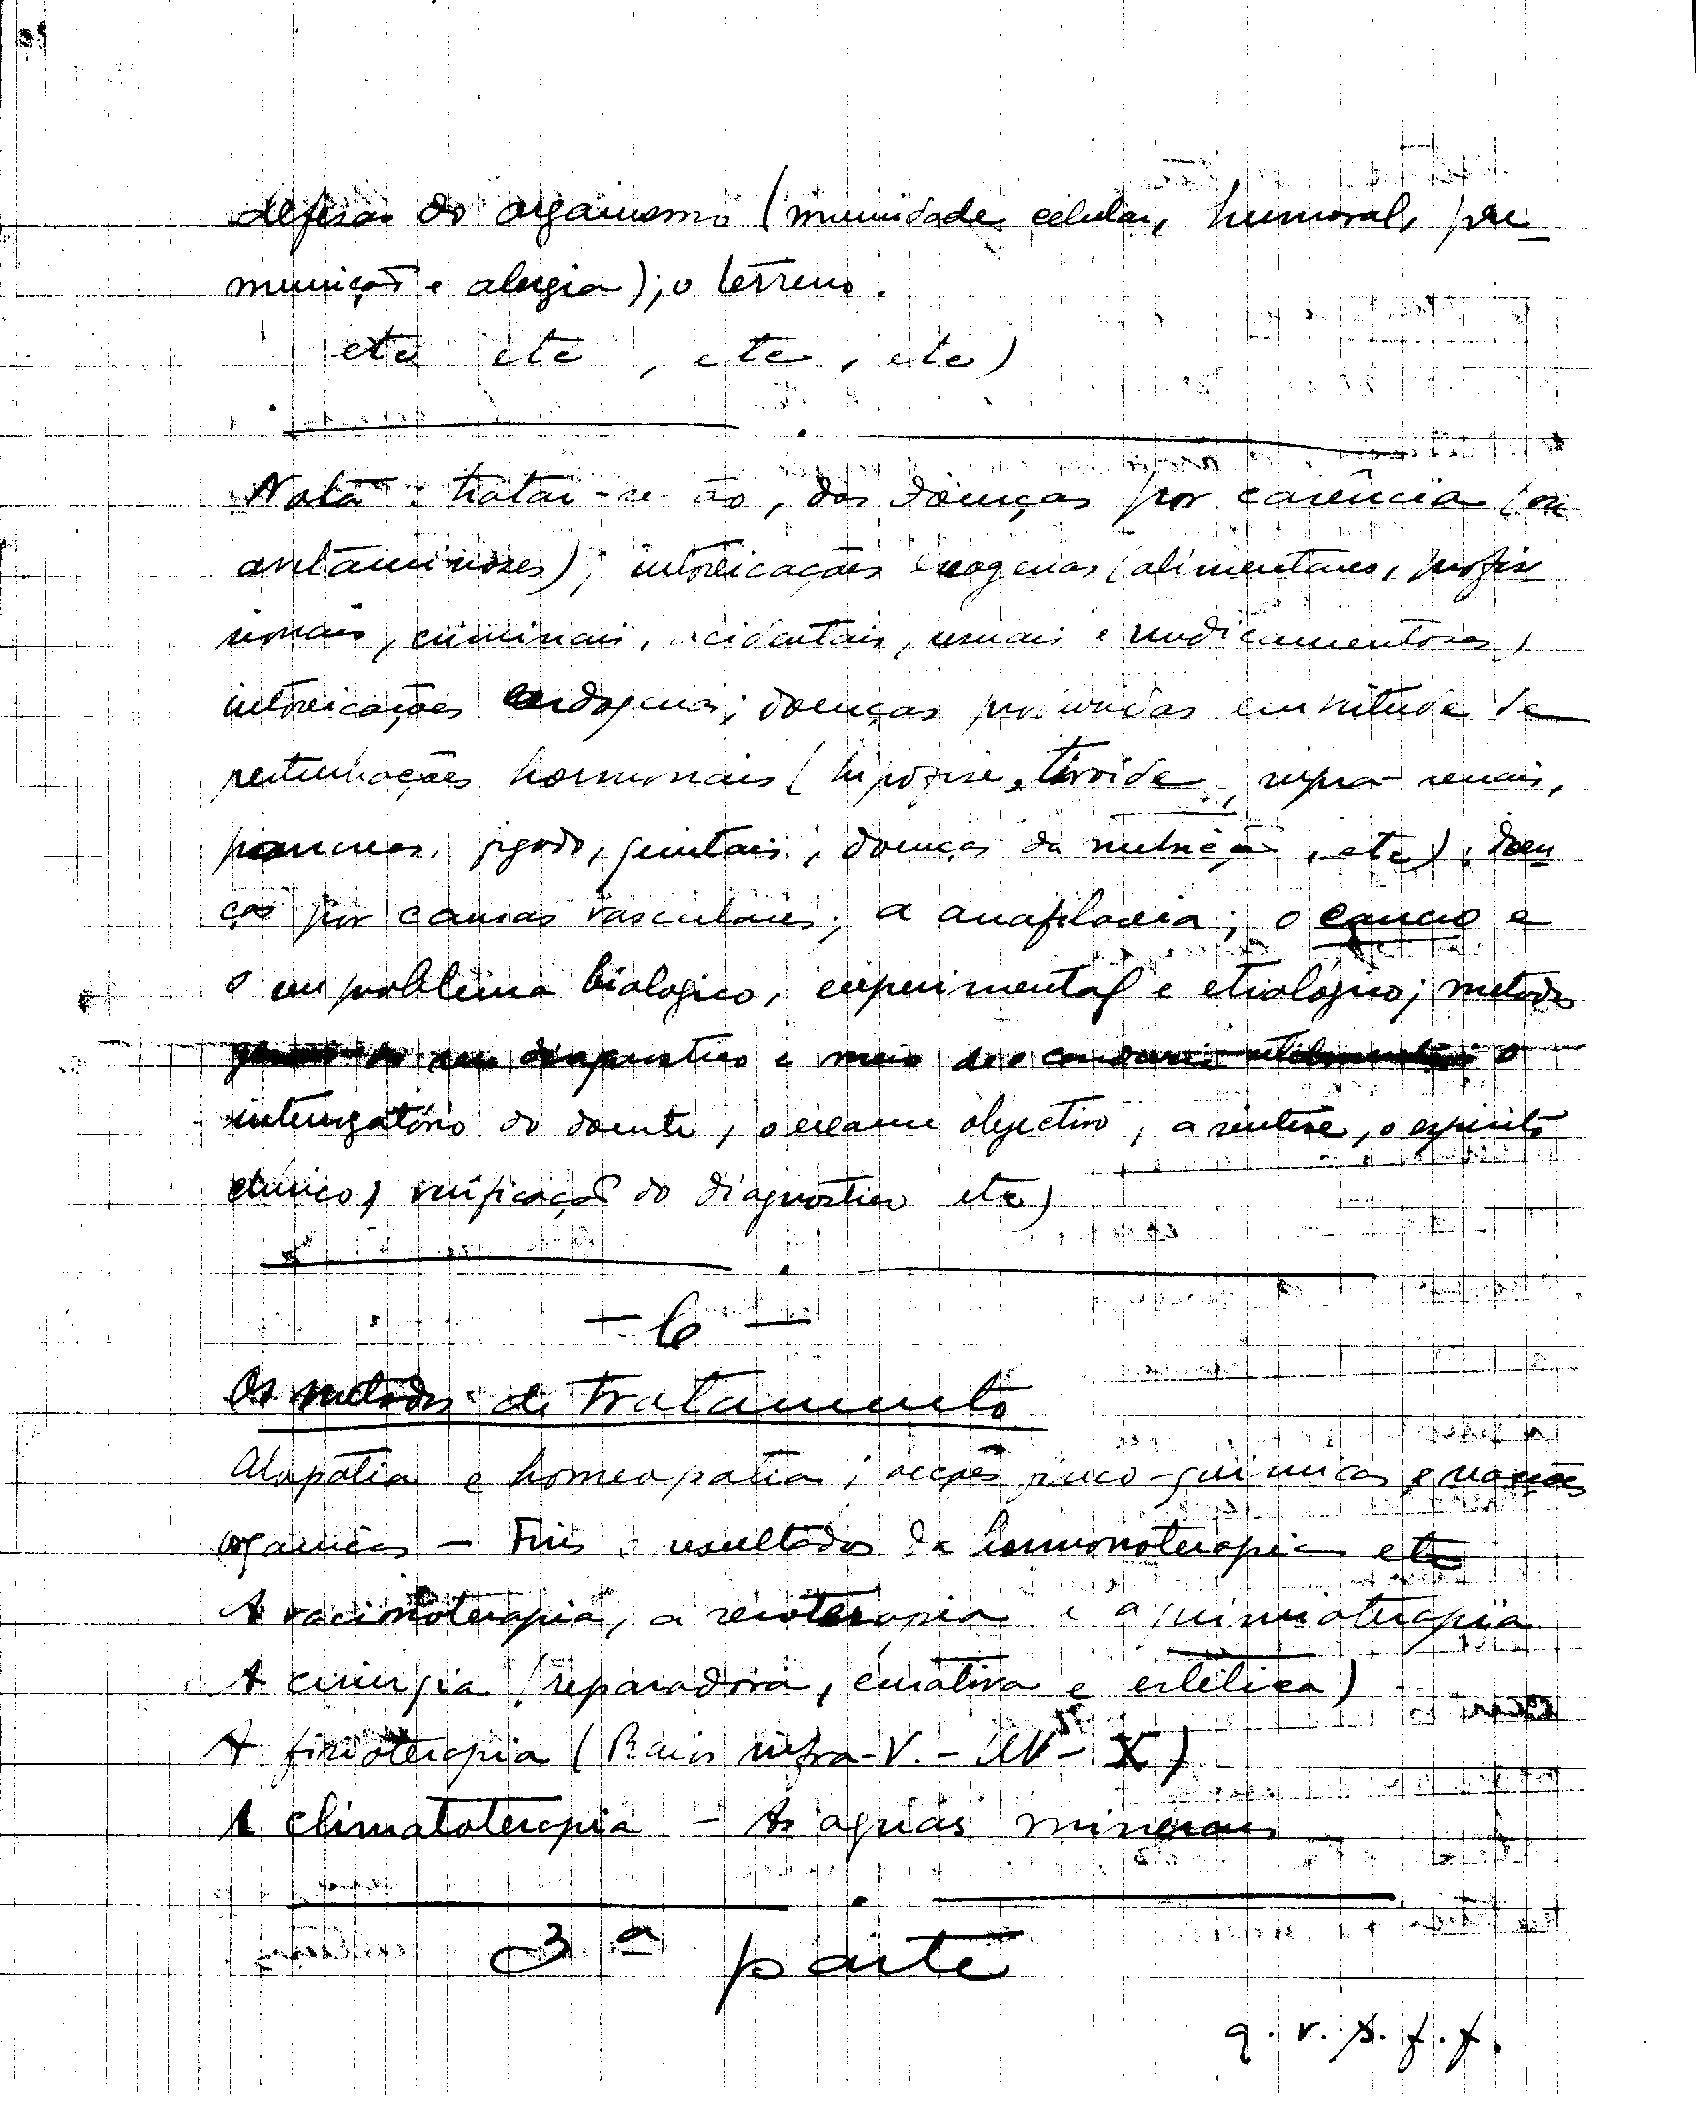 defesas do organismo (imunidade celular, humoral, pre-
munição e alergia); o terreno.
etc etc, etc, etc)
Nota: tratar-se ão, das doenças por carência (ou
avitaminoses); intoxicações exogenas (alimentares, profis
sionais, criminais, acidentais, usuais e medicamentosas,
intoxicações endogenas; doenças provindas em virtude de
perturbações hormonais (hipofise, tiroide, supra-renais,
pancreas, figado, genitais; doenças da nutrição, etc); doen
ças por causas vasculares; a anafilaxia; o cancro e
o seu problema biologico, experimental e etiológico; metodos
o
interrogatório do doente, o exame objectivo, a sintese, o espirito
clinico, verificação do diagnostico etc)
- 6 -
Os metodos de tratamento
Alopatia e homeopatia; acções fisico-quimicas e
organicas - Fins e resultados da hormonoterapia etc
A vacinoterapia, a seroterapia e a quimioterapia
A cirurgia (reparadora, curativa e estética)
A fisioterapia (Raios infra-V. - UV - X)
A climatoterapia - As aguas minerais
3ª parte
q. v. s. f. f.